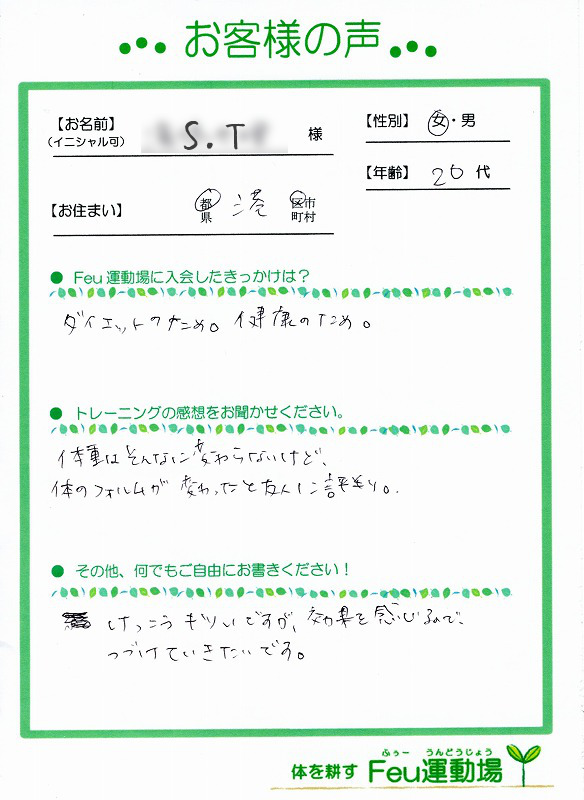 お客様の声
【お名前】
(イニシャル可)
S.T
様
【性別】 女・男
【年齢】 20 代
【お住まい】
都県 港 区市町村
● Feu運動場に入会したきっかけは？
ダイエットのため。健康のため。
● トレーニングの感想をお聞かせください。
体重はそんなに変わらないけど、
体のフォルムが変わったと友人に評判。
● その他、何でもご自由にお書きください！
けっこうキツイですが、効果を感じるので、
つづけていきたいです。
ふぅー うんどうじょう
体を耕す Feu運動場